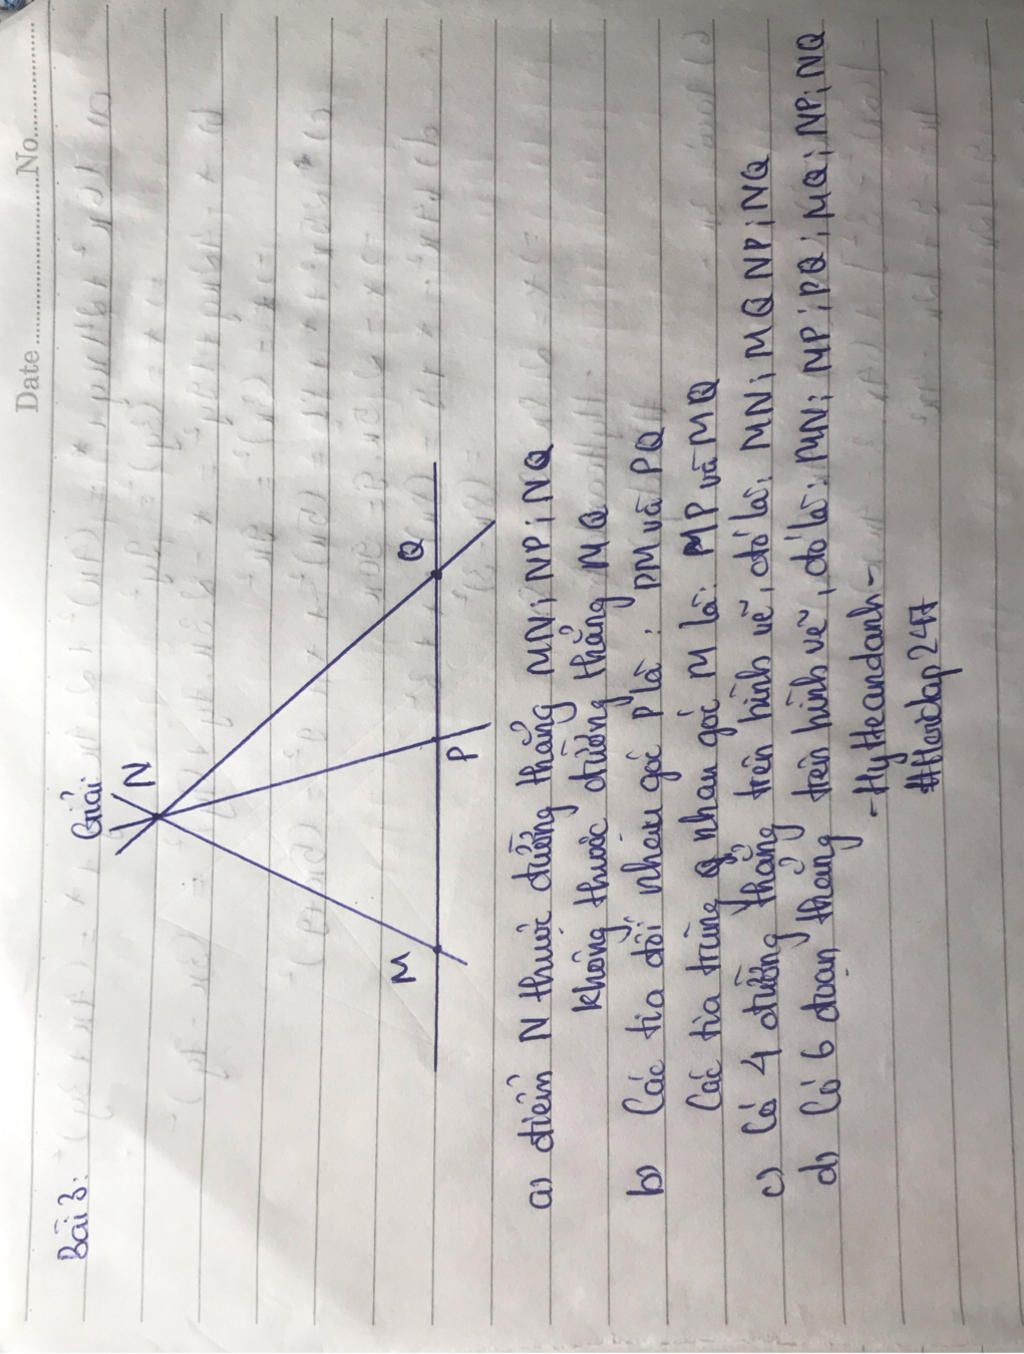 Date ........................ No. ................
Bài 3:
Giải
N
M
P
Q
a) điểm N thuộc đường thẳng MN; NP; NQ
không thuộc đường thẳng MQ
b) Các tia đối nhau gốc P là: PM và PQ
Các tia trùng nhau gốc M là: MP và MQ
c) Có 4 đường thẳng trên hình vẽ, đó là: MN; MQ NP; NQ
d) Có 6 đoạn thẳng trên hình vẽ, đó là: MN; MP; PQ; MQ; NP; NQ
-HyHeandanh-
#Hoidap247